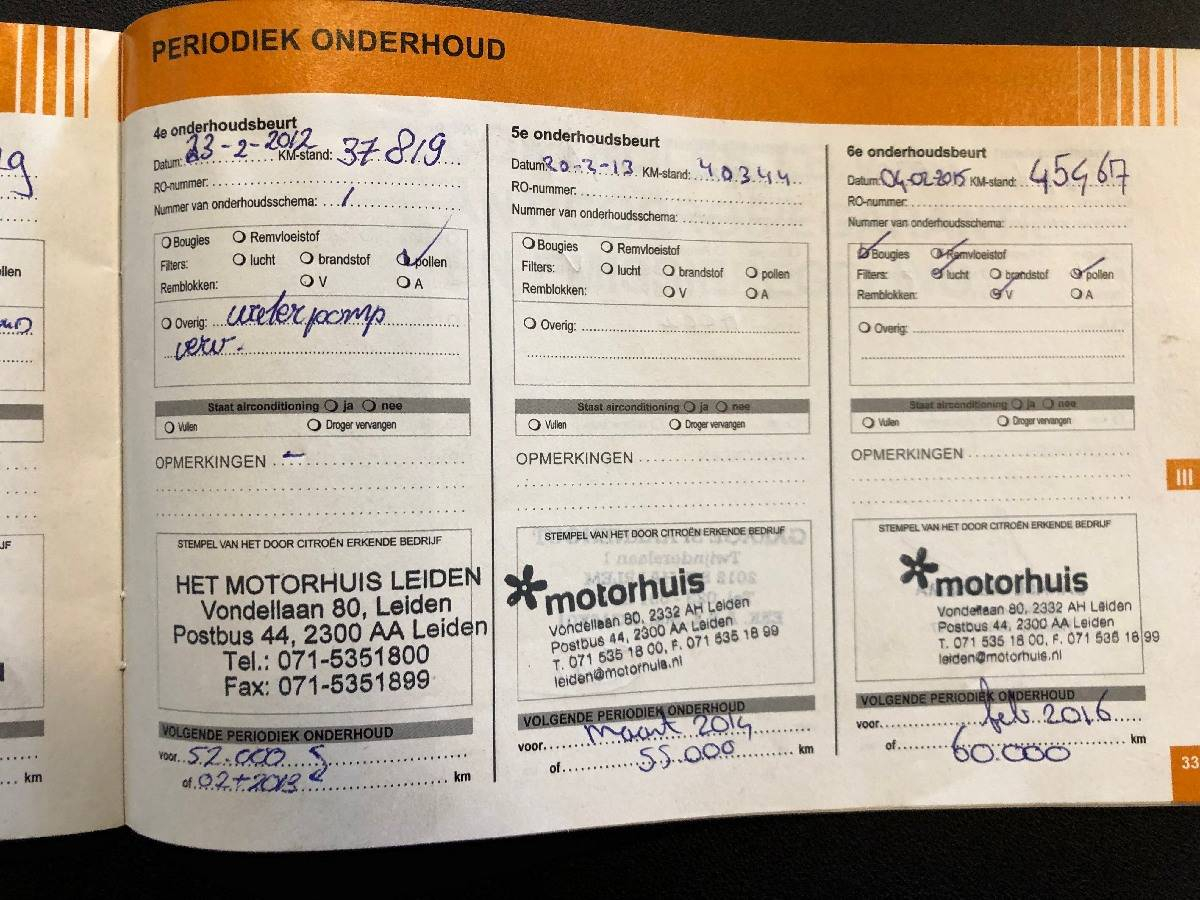 PERIODIEK ONDERHOUD
4e onderhoudsbeurt
Datum: 23-2-2012 KM-stand: 37819
RO-nummer:
Nummer van onderhoudsschema: 1
Bougies Remvloeistof
Filters: lucht brandstof pollen
Remblokken: V A
Overig: waterpomp
verv.
Staat airconditioning ja nee
Vullen Droger vervangen
OPMERKINGEN -
STEMPEL VAN HET DOOR CITROËN ERKENDE BEDRIJF
HET MOTORHUIS LEIDEN
Vondellaan 80, Leiden
Postbus 44, 2300 AA Leiden
Tel.: 071-5351800
Fax: 071-5351899
VOLGENDE PERIODIEK ONDERHOUD
voor 52.000
of 02+2013 km
5e onderhoudsbeurt
Datum: 20-2-13 KM-stand: 40344
RO-nummer:
Nummer van onderhoudsschema:
Bougies Remvloeistof
Filters: lucht brandstof pollen
Remblokken: V A
Overig:
Staat airconditioning ja nee
Vullen Droger vervangen
OPMERKINGEN
STEMPEL VAN HET DOOR CITROËN ERKENDE BEDRIJF
motorhuis
Vondellaan 80, 2332 AH Leiden
Postbus 44, 2300 AA Leiden
T. 071 535 18 00, F. 071 535 18 99
leiden@motorhuis.nl
VOLGENDE PERIODIEK ONDERHOUD
voor maart 2014
of 55.000 km
6e onderhoudsbeurt
Datum: 04-02-2015 KM-stand: 45467
RO-nummer:
Nummer van onderhoudsschema:
Bougies Remvloeistof
Filters: lucht brandstof pollen
Remblokken: V A
Overig:
Staat airconditioning ja nee
Vullen Droger vervangen
OPMERKINGEN
STEMPEL VAN HET DOOR CITROËN ERKENDE BEDRIJF
motorhuis
Vondellaan 80, 2332 AH Leiden
Postbus 44, 2300 AA Leiden
T. 071 535 18 00, F. 071 535 18 99
leiden@motorhuis.nl
VOLGENDE PERIODIEK ONDERHOUD
voor feb. 2016
of 60.000 km
III
33
km